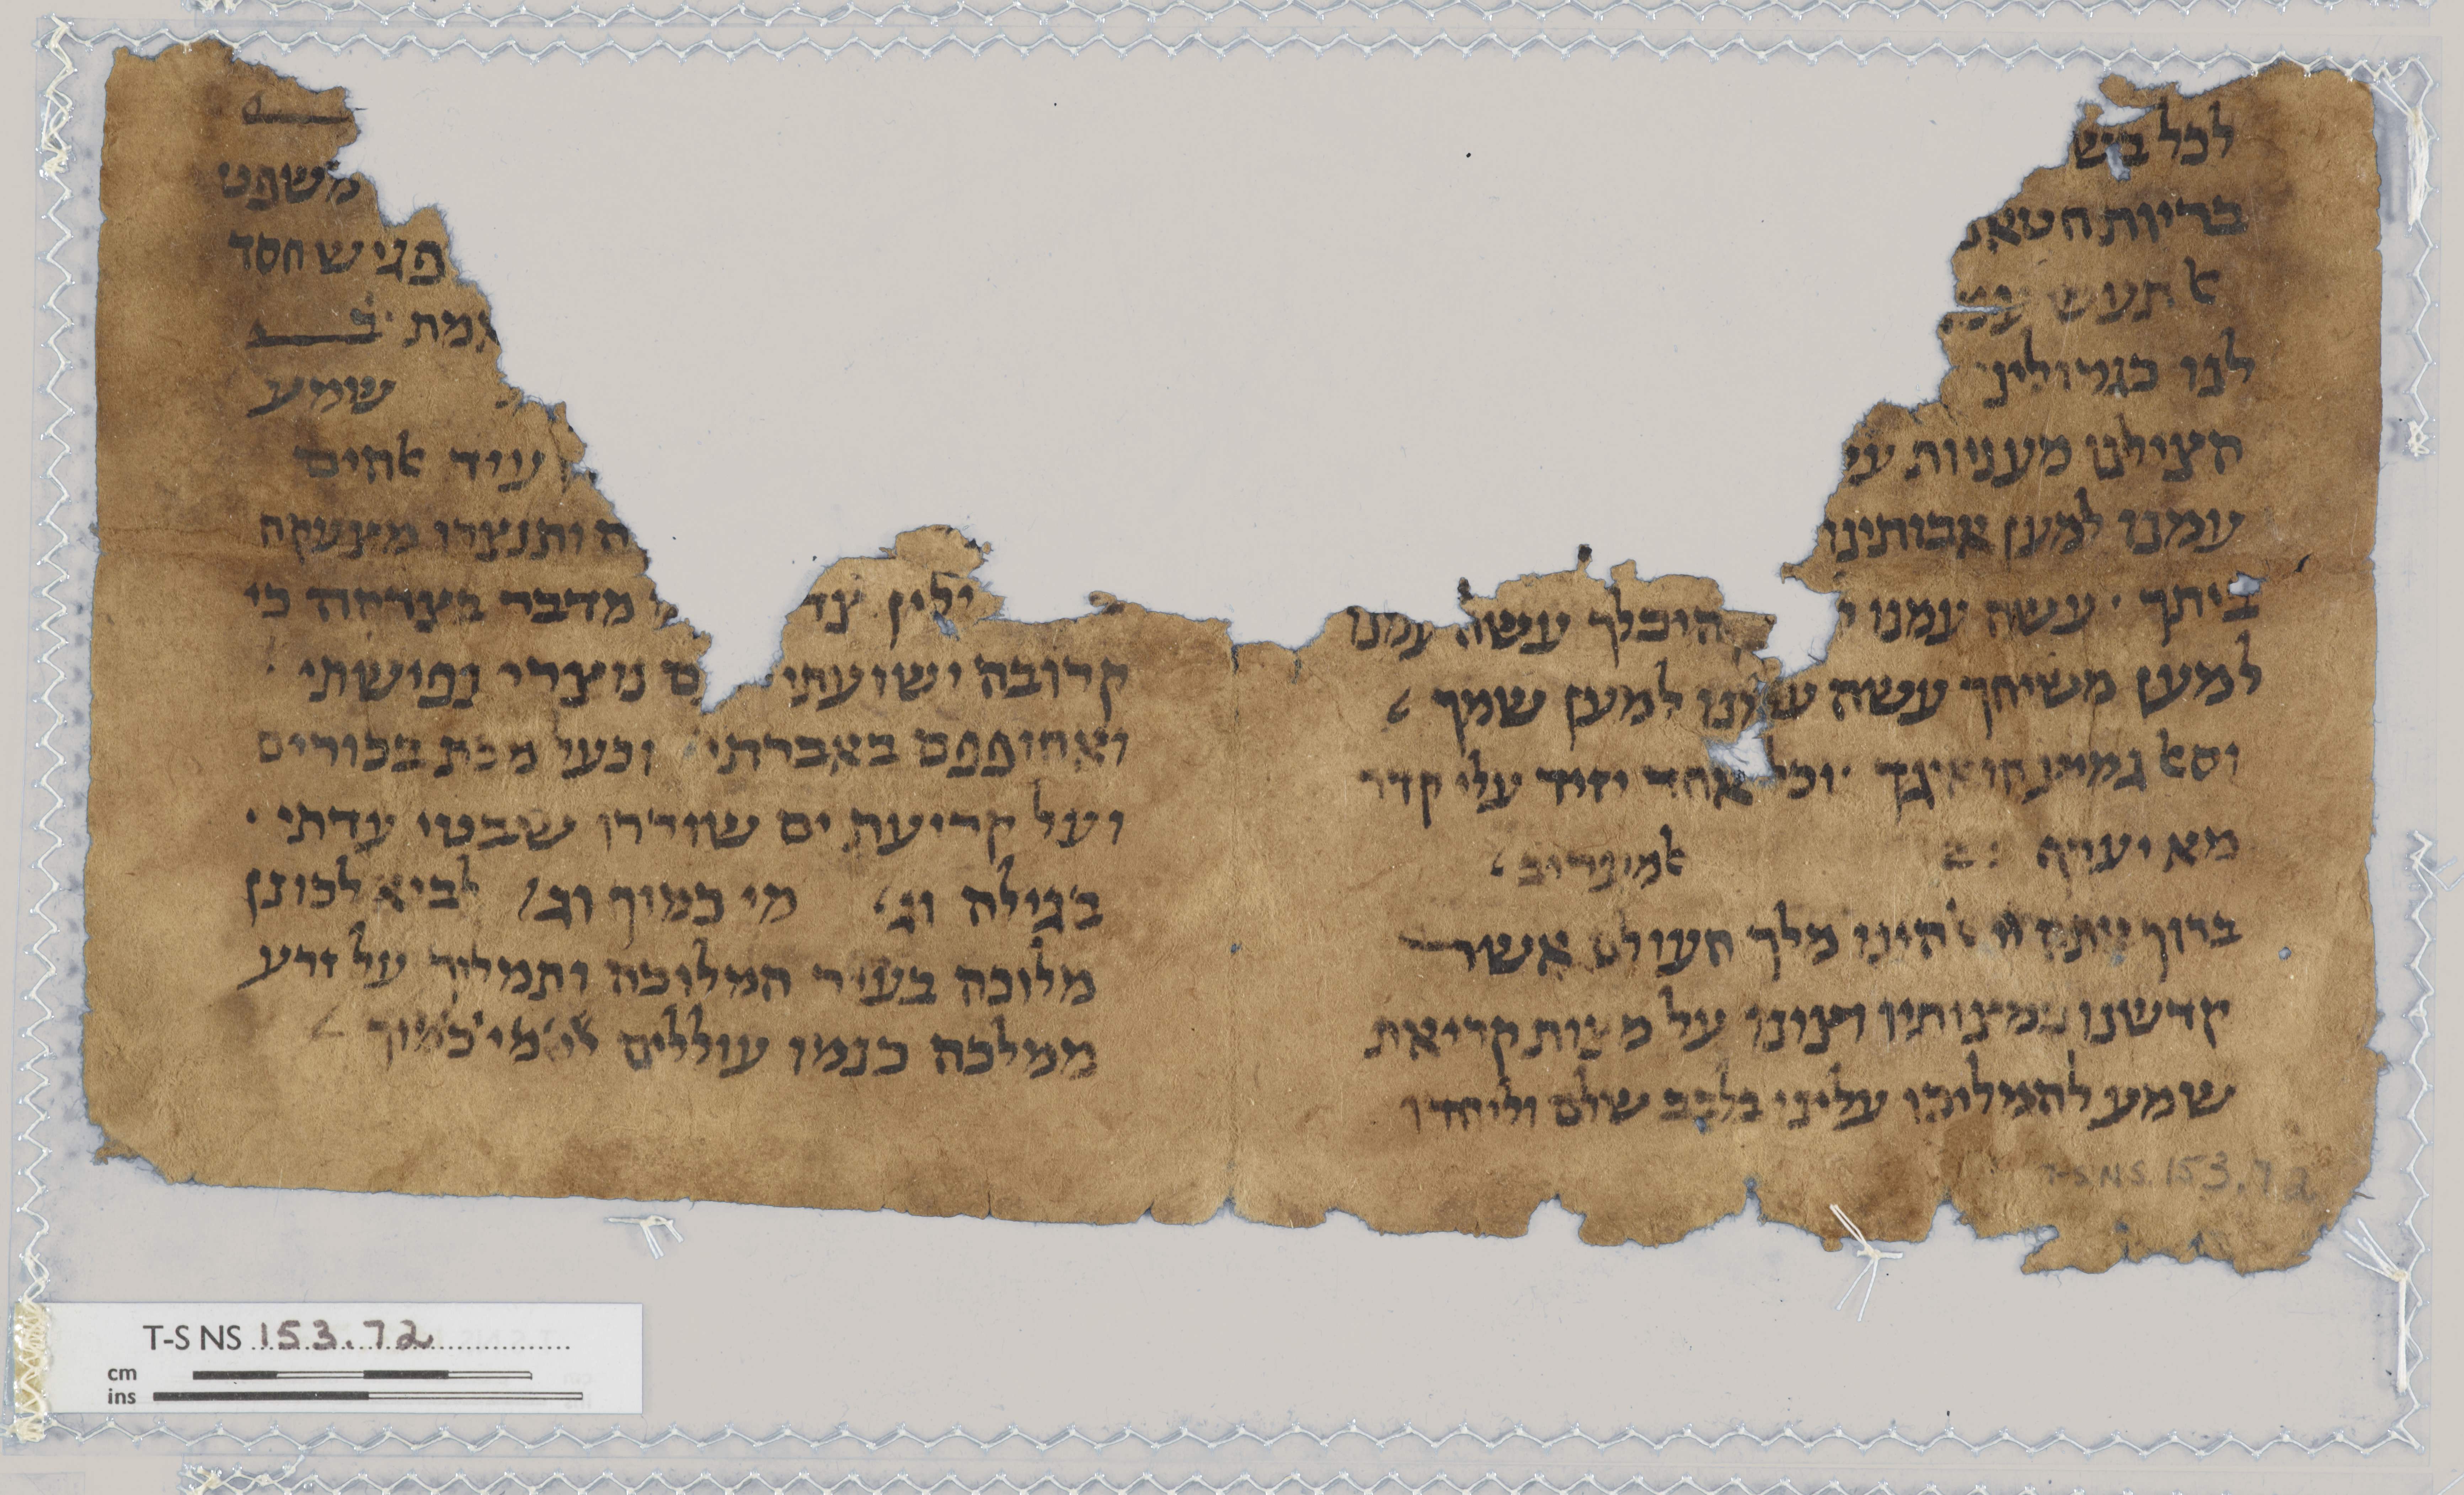 לכל בש
בריות חטאנ
א תעש עמ
לנו כגמולינ
הצילנו מעניות עי
עמנו למען אבותינו
ביתך · עשה עמנו היכלך עשה עמנו
למען משיחך עשה עמנו למען שמך
אחד יזיד עלי קדר
מא יערף
ברוך אתה יי אלהינו מלך העולם אשר
קדשנו במצותיו וצונו על מצות קריאת
שמע להמליכו עלינו בלבב שלם וליחדו
T-S NS 153.72
משפט
פגיש חסד
אמת · ב
שמע
עוד אחים
ה ותנצרו מצעקה
ילין צד מדבר בצרחה כי
קרובה ישועתי ם מצרי נפישתי
ואחופפם באברתי וכעל מכת בכורים
ועל קריעת ים שוררו שבטי עדתי ·
בגילה וג מי כמוך וג לביא לכונן
מלוכה בעיר המלוכה ותמליך על זרע
ממלכה כנמו עוללים מי כמוך
T-S NS 153.72
cm
ins